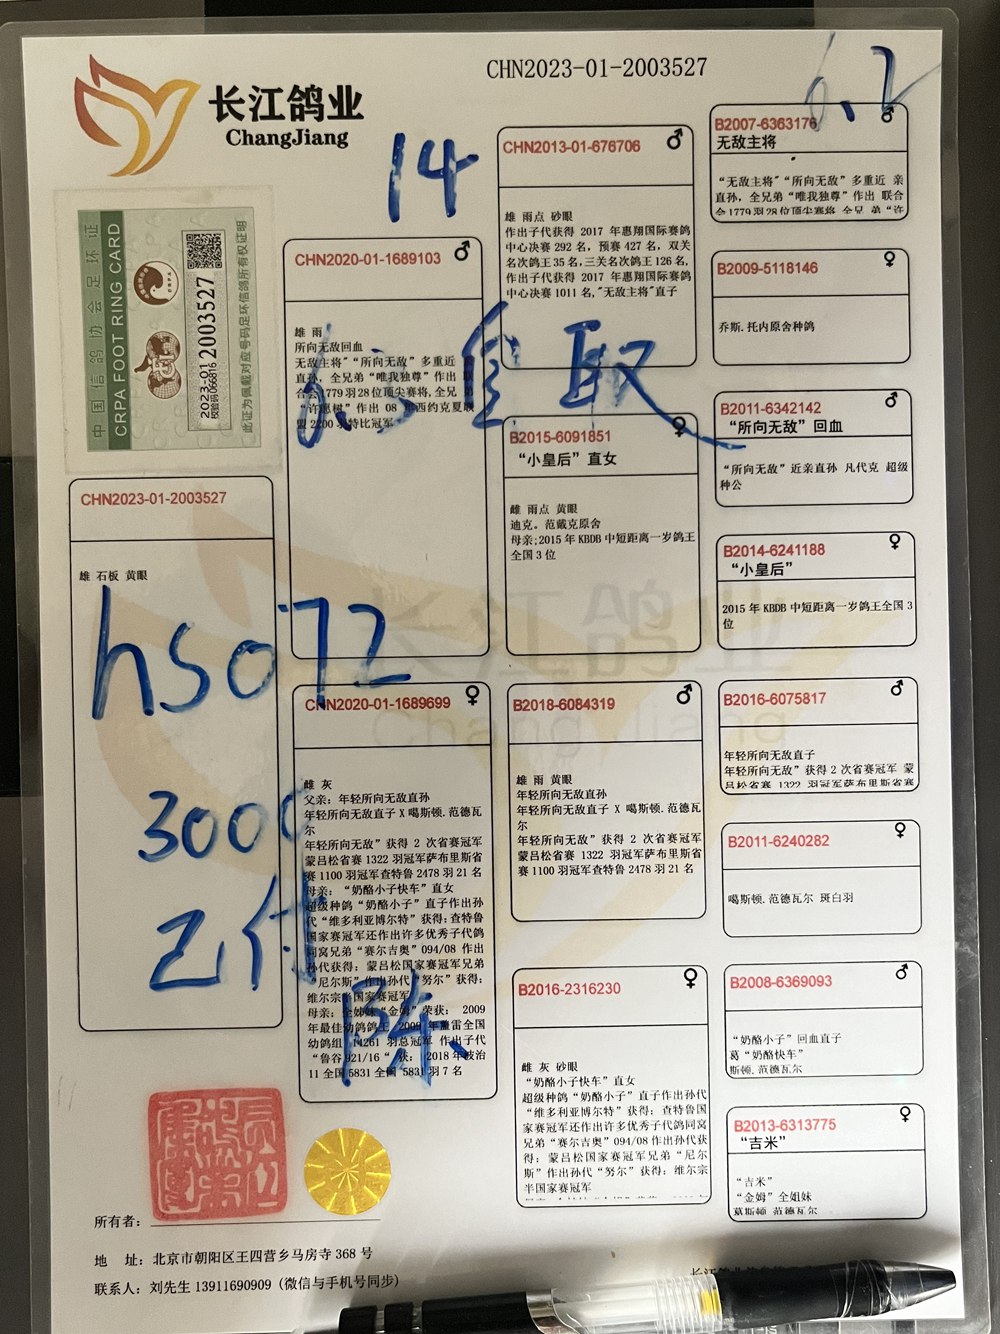 长江鸽业
ChangJiang
CHN2023-01-2003527
6.2
14
中国信鸽协会足环证
CRPA FOOT RING CARD
2023-01 2003527
校验码066816
此证为佩戴对应号码足环信鸽所有权证明
CHN2023-01-2003527
雄 石板 黄眼
hs072
3000
CHN2020-01-1689103
雄 雨
所向无敌回血
无敌主将"“所向无敌”多重近
直孙，全兄弟“唯我独尊”作出 联
合会1779羽28位顶尖赛将,全兄 弟
“许惠树”作出 08 年西约克夏联
盟 2200 羽特比冠军
取
CHN2020-01-1689699
雌 灰
父亲：年轻所向无敌直孙
年轻所向无敌直子 X 噶斯顿.范德瓦
尔
年轻所向无敌”获得 2 次省赛冠军
蒙吕松省赛 1322 羽冠军萨布里斯省
赛 1100 羽冠军查特鲁 2478 羽 21 名
母亲：“奶酪小子快车”直女
超级种鸽“奶酪小子”直子作出孙
代“维多利亚博尔特”获得:查特鲁
国家赛冠军还作出许多优秀子代鸽
同窝兄弟“赛尔吉奥”094/08 作出
孙代获得：蒙吕松国家赛冠军兄弟
“尼尔斯”作出孙代“努尔”获得：
维尔宗半国家赛冠军
母亲：全姊妹“金姆”荣获： 2009
年最佳幼鸽鸽王
幼鸽组 羽总冠军 作出子代
“鲁谷 921/16 “ 获： 2018 年波治
11 全国 5831 全国 5831 羽 7 名
陈
CHN2013-01-676706
雄 雨点 砂眼
作出子代获得 2017 年惠翔国际赛鸽
中心决赛 292 名，预赛 427 名，双关
名次鸽王 35 名,三关名次鸽王 126 名,
作出子代获得 2017 年惠翔国际赛鸽
中心决赛 1011 名,"无敌主将"直子
B2015-6091851
“小皇后”直女
雌 雨点 黄眼
迪克。范戴克原舍
母亲;2015 年 KBDB 中短距离一岁鸽王
全国 3 位
B2018-6084319
雄 雨 黄眼
年轻所向无敌直孙
年轻所向无敌直子 X 噶斯顿.范德瓦
尔
年轻所向无敌”获得 2 次省赛冠军
蒙吕松省赛 1322 羽冠军萨布里斯省
赛 1100 羽冠军查特鲁 2478 羽 21 名
B2016-2316230
雌 灰 砂眼
“奶酪小子快车”直女
超级种鸽“奶酪小子”直子作出孙代
“维多利亚博尔特”获得：查特鲁国
家赛冠军还作出许多优秀子代鸽同窝
兄弟“赛尔吉奥”094/08 作出孙代获
得：蒙吕松国家赛冠军兄弟“尼尔
斯”作出孙代“努尔”获得：维尔宗
半国家赛冠军
B2007-6363176
无敌主将
“无敌主将"“所向无敌”多重近 亲
直孙，全兄弟“唯我独尊”作出 联合
会1779羽28位顶尖赛将,全兄 弟“许
B2009-5118146
乔斯.托内原舍种鸽
B2011-6342142
“所向无敌”回血
“所向无敌”近亲直孙 凡代克 超级
种公
B2014-6241188
“小皇后”
2015 年 KBDB 中短距离一岁鸽王全国 3
位
B2016-6075817
年轻所向无敌直子
年轻所向无敌”获得 2 次省赛冠军 蒙
吕松省赛 1322 羽冠军萨布里斯省赛
B2011-6240282
噶斯顿.范德瓦尔 斑白羽
B2008-6369093
“奶酪小子”回血直子
葛“奶酪快车”
斯顿.范德瓦尔
B2013-6313775
“吉米”
“吉米”
“金姆”全姐妹
葛斯顿 范德瓦尔
长江鸽业
ChangJiang
所有者：
地 址：北京市朝阳区王四营乡马房寺 368 号
联系人：刘先生 13911690909 (微信与手机号同步)